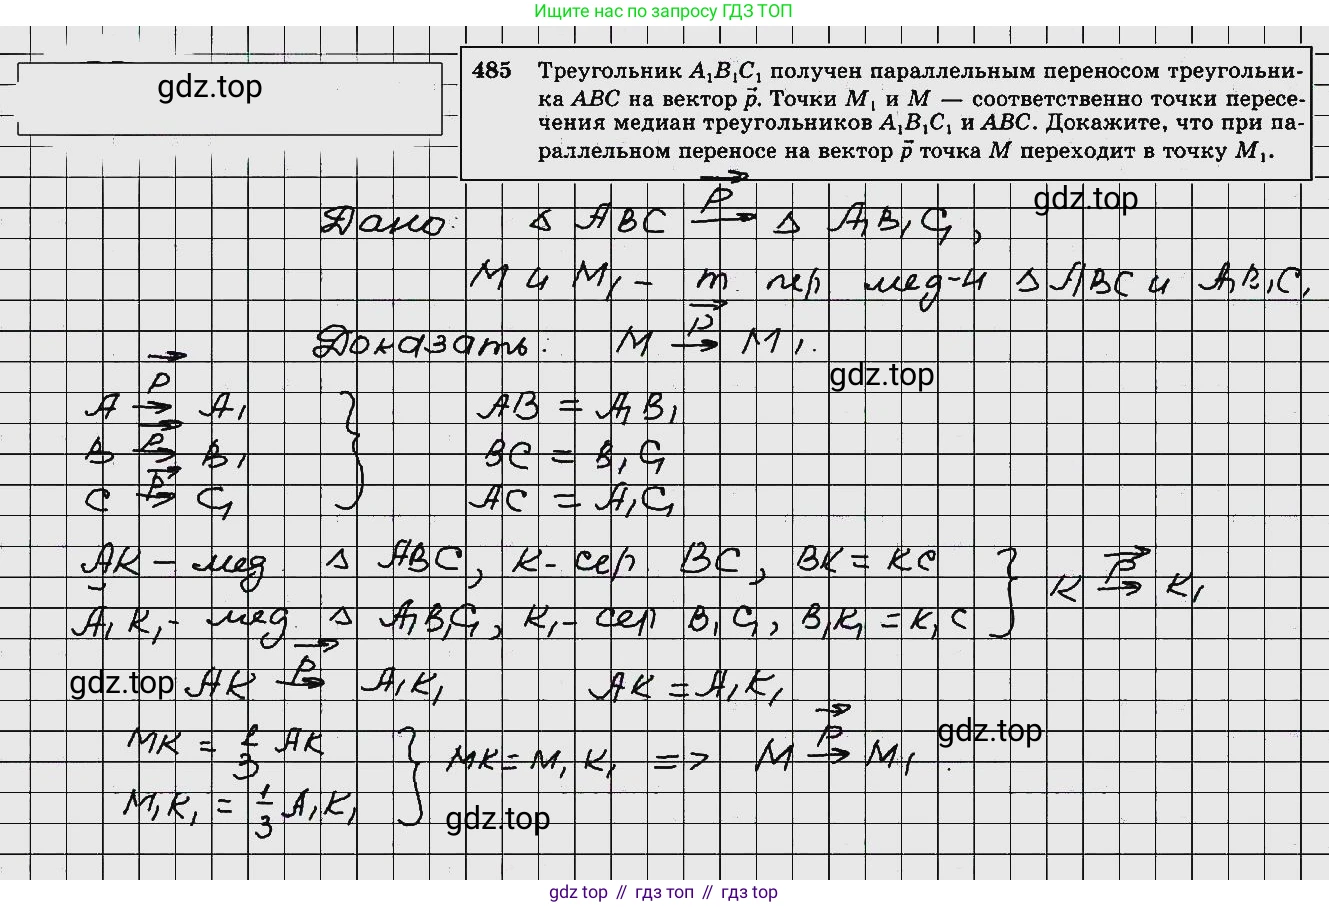 Ищите нас по запросу ГДЗ ТОП
gdz.top
485 Треугольник A₁B₁C₁ получен параллельным переносом треугольни-
ка ABC на вектор p⃗. Точки M₁ и M — соответственно точки пересе-
чения медиан треугольников A₁B₁C₁ и ABC. Докажите, что при па-
раллельном переносе на вектор p⃗ точка M переходит в точку M₁.
gdz.top
Дано: Δ ABC →(p⃗) Δ A₁B₁C₁,
M и M₁ – т. пер. мед-и Δ ABC и A₁B₁C₁
Доказать: M →(p⃗) M₁.
gdz.top
A →(p⃗) A₁ } AB = A₁B₁
B →(p⃗) B₁ } BC = B₁C₁
C →(p⃗) C₁ } AC = A₁C₁
AK – мед. Δ ABC, K - сер. BC, BK = KC } K →(p⃗) K₁
A₁K₁ - мед. Δ A₁B₁C₁, K₁ - сер B₁C₁, B₁K₁ = K₁C }
gdz.top AK →(p⃗) A₁K₁ AK = A₁K₁
MK = 1/3 AK } MK = M₁K₁ => M →(p⃗) M₁.
gdz.top
M₁K₁ = 1/3 A₁K₁ }
gdz.top
gdz top // гдз топ // gdz top